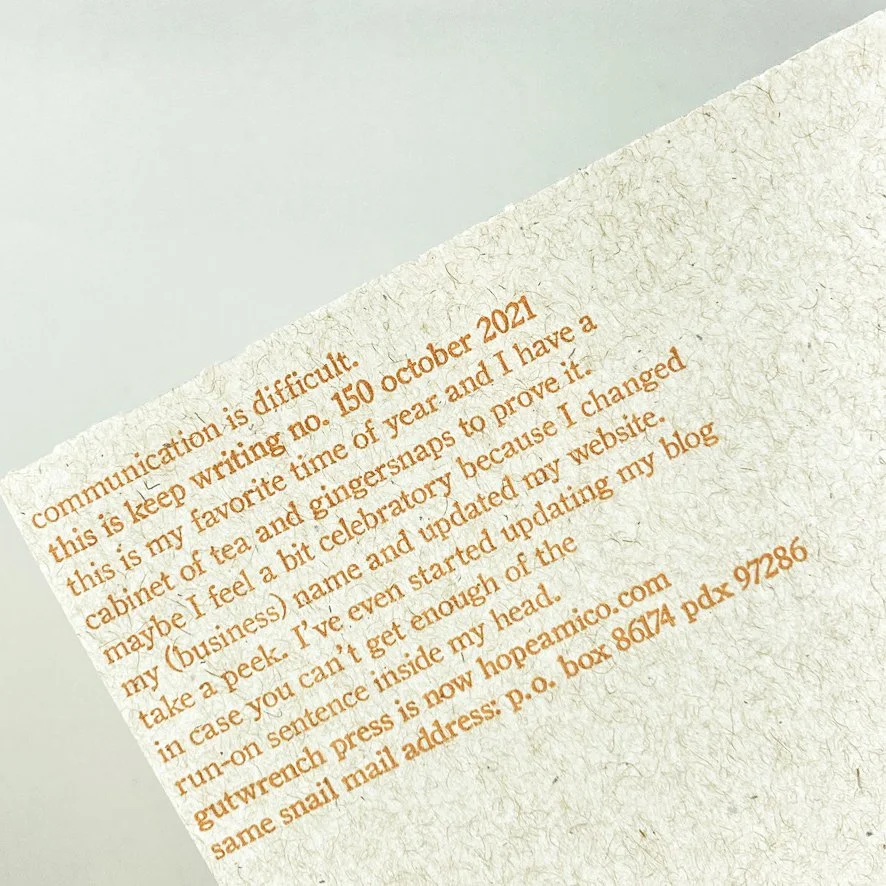 communication is difficult.
this is keep writing no. 150 october 2021
this is my favorite time of year and I have a
cabinet of tea and gingersnaps to prove it.
maybe I feel a bit celebratory because I changed
my (business) name and updated my website.
take a peek. I've even started updating my blog
in case you can't get enough of the
run-on sentence inside my head.
gutwrench press is now hopeamico.com
same snail mail address: p.o. box 86174 pdx 97286